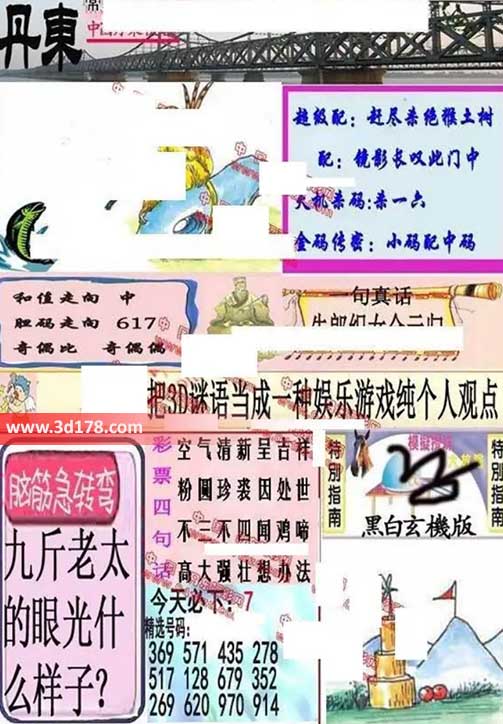 丹東
超级配：赶尽杀绝猴土树
配：镜影长叹此门中
天机杀码:杀一六
金码传密：小码配中码
和值走向 中
胆码走向 617
奇偶比 奇偶偶
一句真话
牛郎织女会云归
把3D谜语当成一种娱乐游戏纯个人观点
www.3d178.com
脑筋急转弯
九斤老太
的眼光什
么样子？
彩票四句话
空气清新呈吉祥
粉圆珍裘因处世
不三不四闻鸡啼
高大强壮想办法
今天必下：7
精选号码：
369 571 435 278
517 128 679 352
269 620 970 914
特别指南
特别指南
黑白玄機版